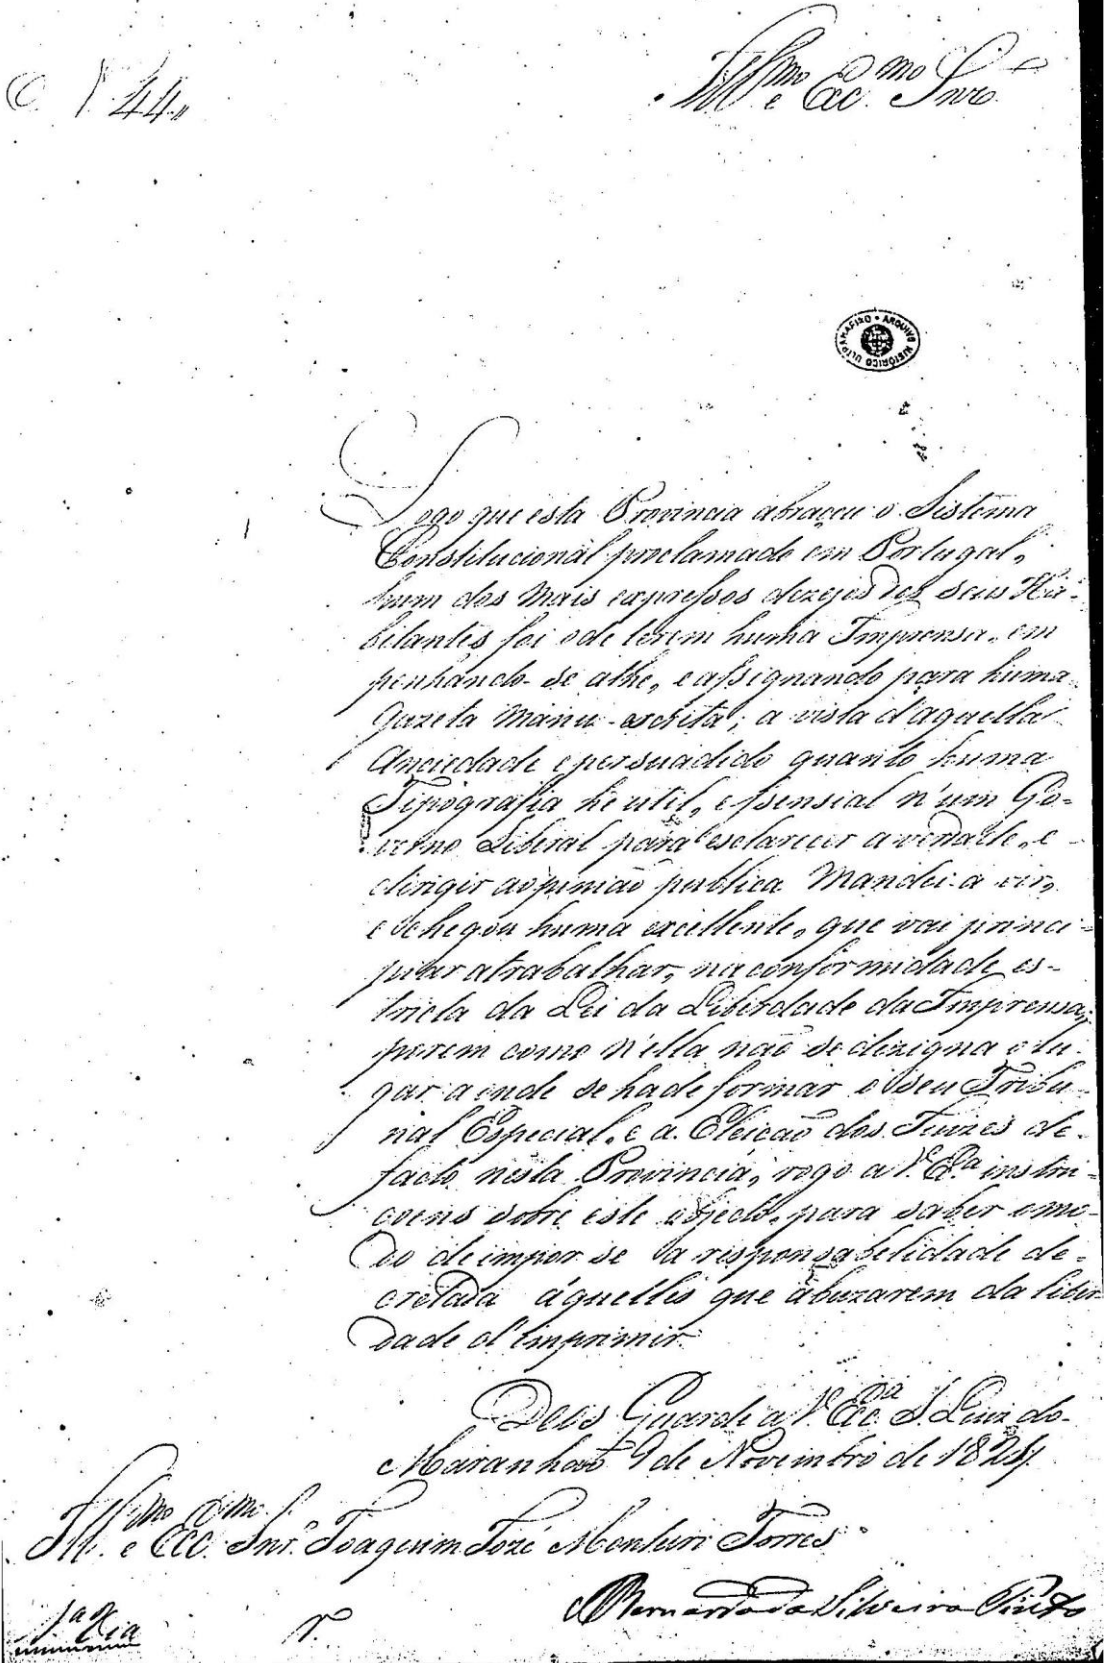 N 44
Ill.mo e Exc.mo Snr.
ARQUIVO HISTÓRICO ULTRAMARINO
Logo que esta Provincia abraçou o Sistema
Constitucional proclamado em Portugal,
hum dos mais expressos dezejos dos seus Ha-
bitantes foi o de terem huma Imprensa, em
penhando-se athe, e assignando para huma
Gazeta Manu-escrita; a vista d'aquella
Anciedade e persuadido quanto huma
Tipografia he util, e ssensial n'um Go-
verno Liberal para esclarecer a verdade, e
dirigir a opinião publica Mandei-a vir,
e chegou huma excellente, que vai princi-
piar a trabalhar, na conformidade es-
tricta da Lei da Liberdade da Imprensa,
porem como n'ella não se dezigna o lu-
gar aonde se hade formar o seu Tribu-
nal Especial, e a Eleição dos Juizes de
facto nesta Provincia, rogo a V. Ex.a instru-
coens sobre este objecto, para saber o mo-
do de impor-se a responsabelidade de-
cretada áquelles que abuzarem da liber
dade d'imprimir.
Deos Guarde a V. Exc.a S. Luiz do
Maranhão 9 de Novembro de 1821
Ill.mo e Exc.mo Snr. Joaquim José Monteiro Torres
Bernardo da Silveira Pinto